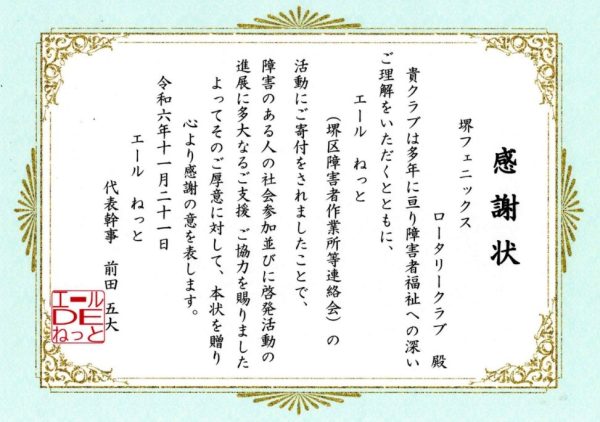 感謝状
堺フェニックス
ロータリークラブ 殿
貴クラブは多年に亘り障害者福祉への深い
ご理解をいただくとともに、
エール ねっと
（堺区障害者作業所等連絡会）の
活動にご寄付をされましたことで、
障害のある人の社会参加並びに啓発活動の
進展に多大なるご支援 ご協力を賜りました
よってそのご厚意に対して、本状を贈り
心より感謝の意を表します。
令和六年十一月二十一日
エール ねっと
代表幹事 前田 五大
エール
DE
ねっと